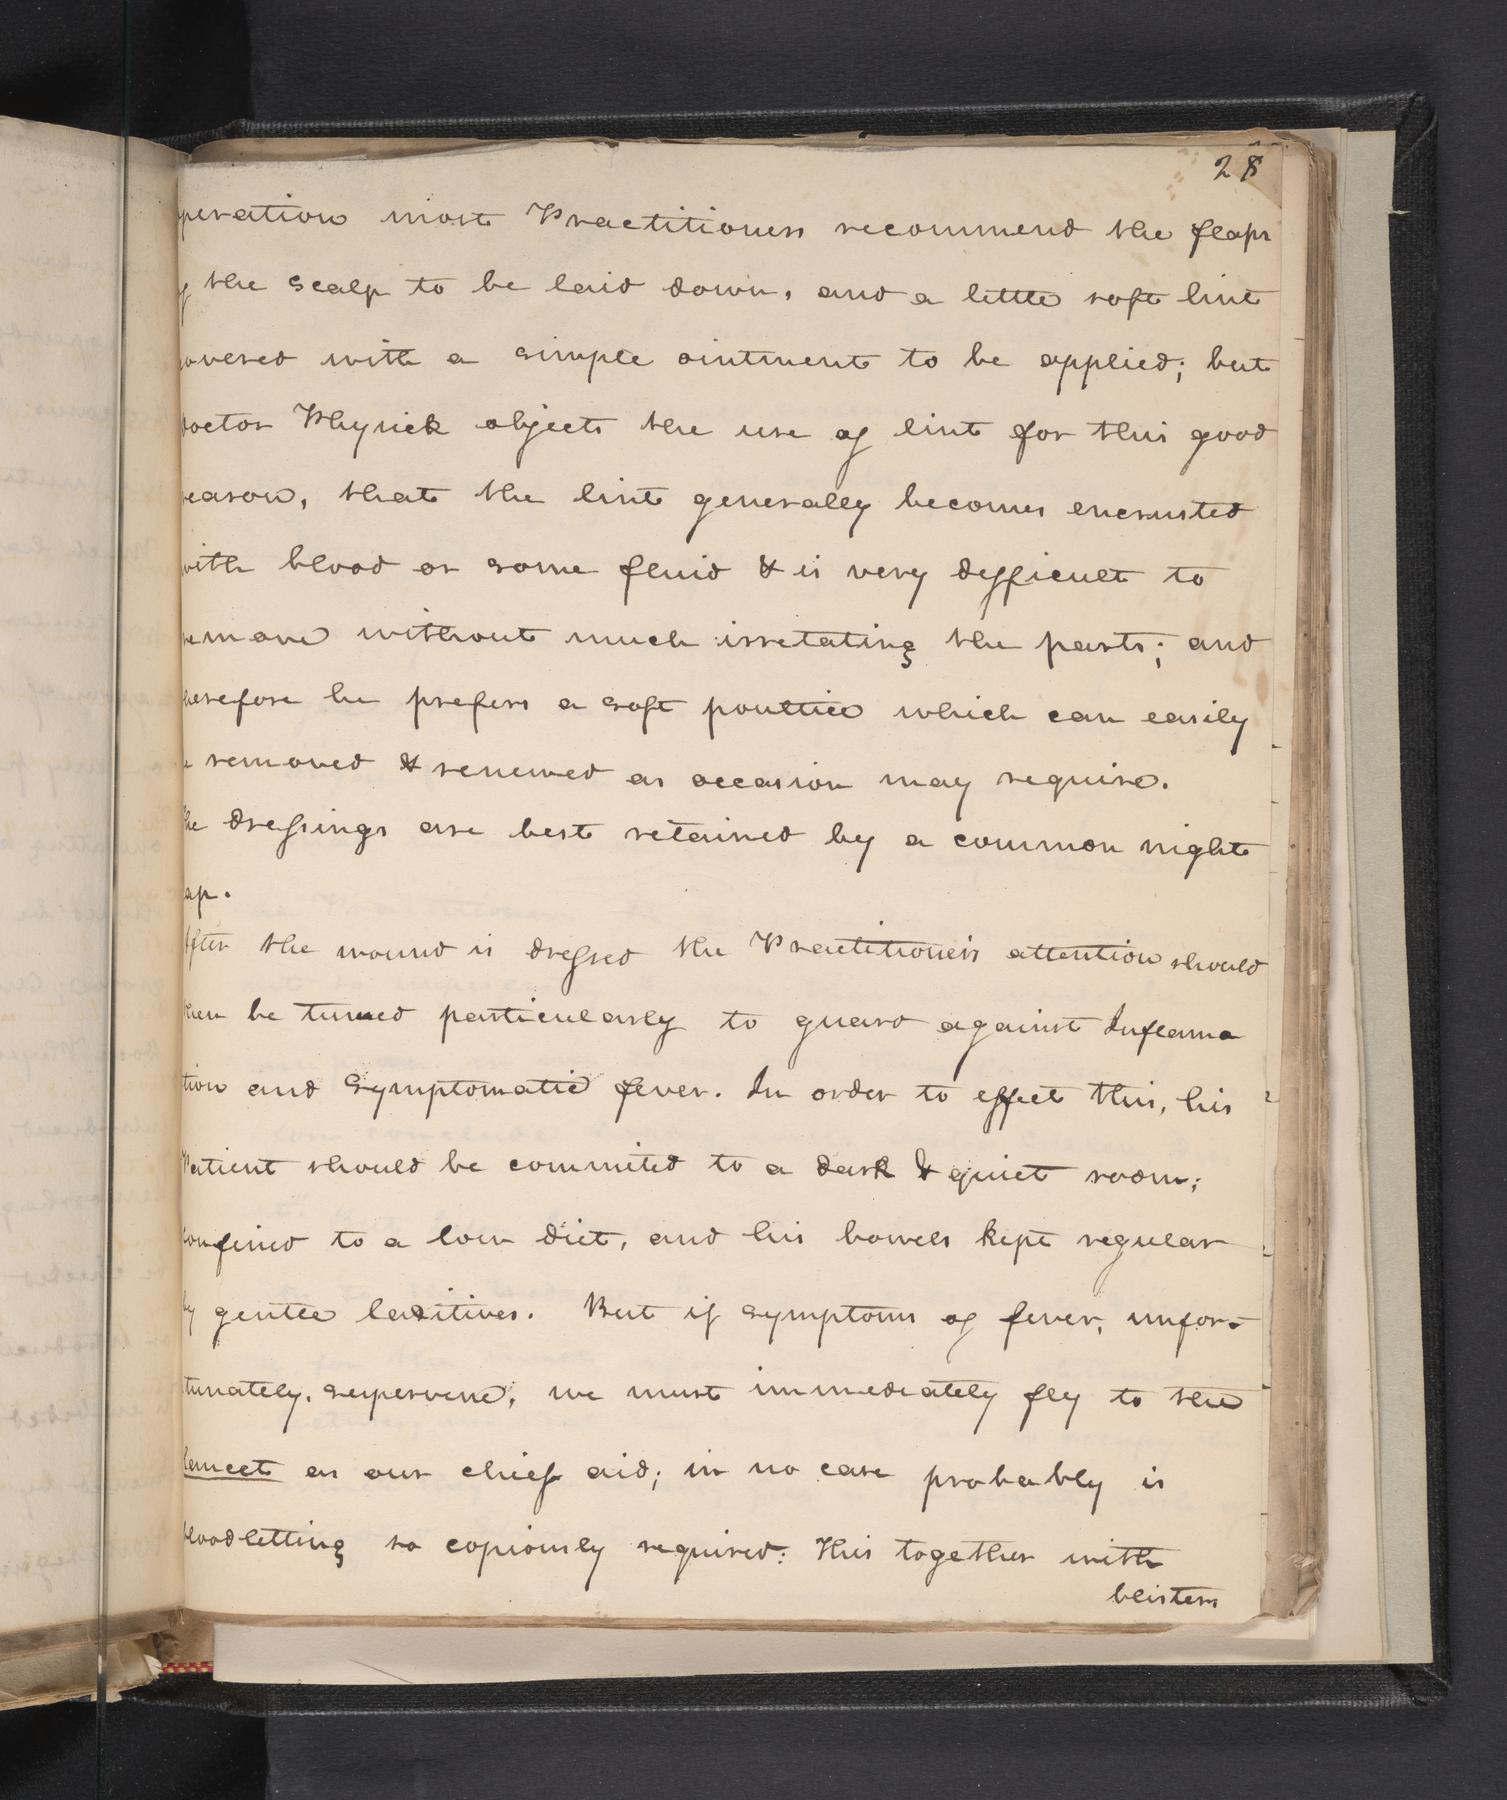 28
peration most Practitioners recommend the flaps
of the scalp to be laid down, and a little soft lint
overed with a simple ointment to be applied; but
Doctor Physick objects the use of lint for this good
reason, that the lint generally becomes encrusted
with blood or some fluid & is very difficult to
remove without much irretating the parts; and
herefore he prefers a soft poultice which can easily
e removed & renewed as occasion may require.
The dressings are best retained by a common night
ap.
After the wound is dressed the Practitioner's attention should
then be turned particularly to guard against Inflama
tion and symptomatic fever. In order to effect this, his
Patient should be commited to a dark & quiet room;
confined to a low diet, and his bowels kept regular
by gentle laxitives. But if symptoms of fever, unfor-
tunately, supervene, we must immediately fly to the
lancet as our chief aid; in no case probably is
bloodletting so copiously required: This together with
blisters